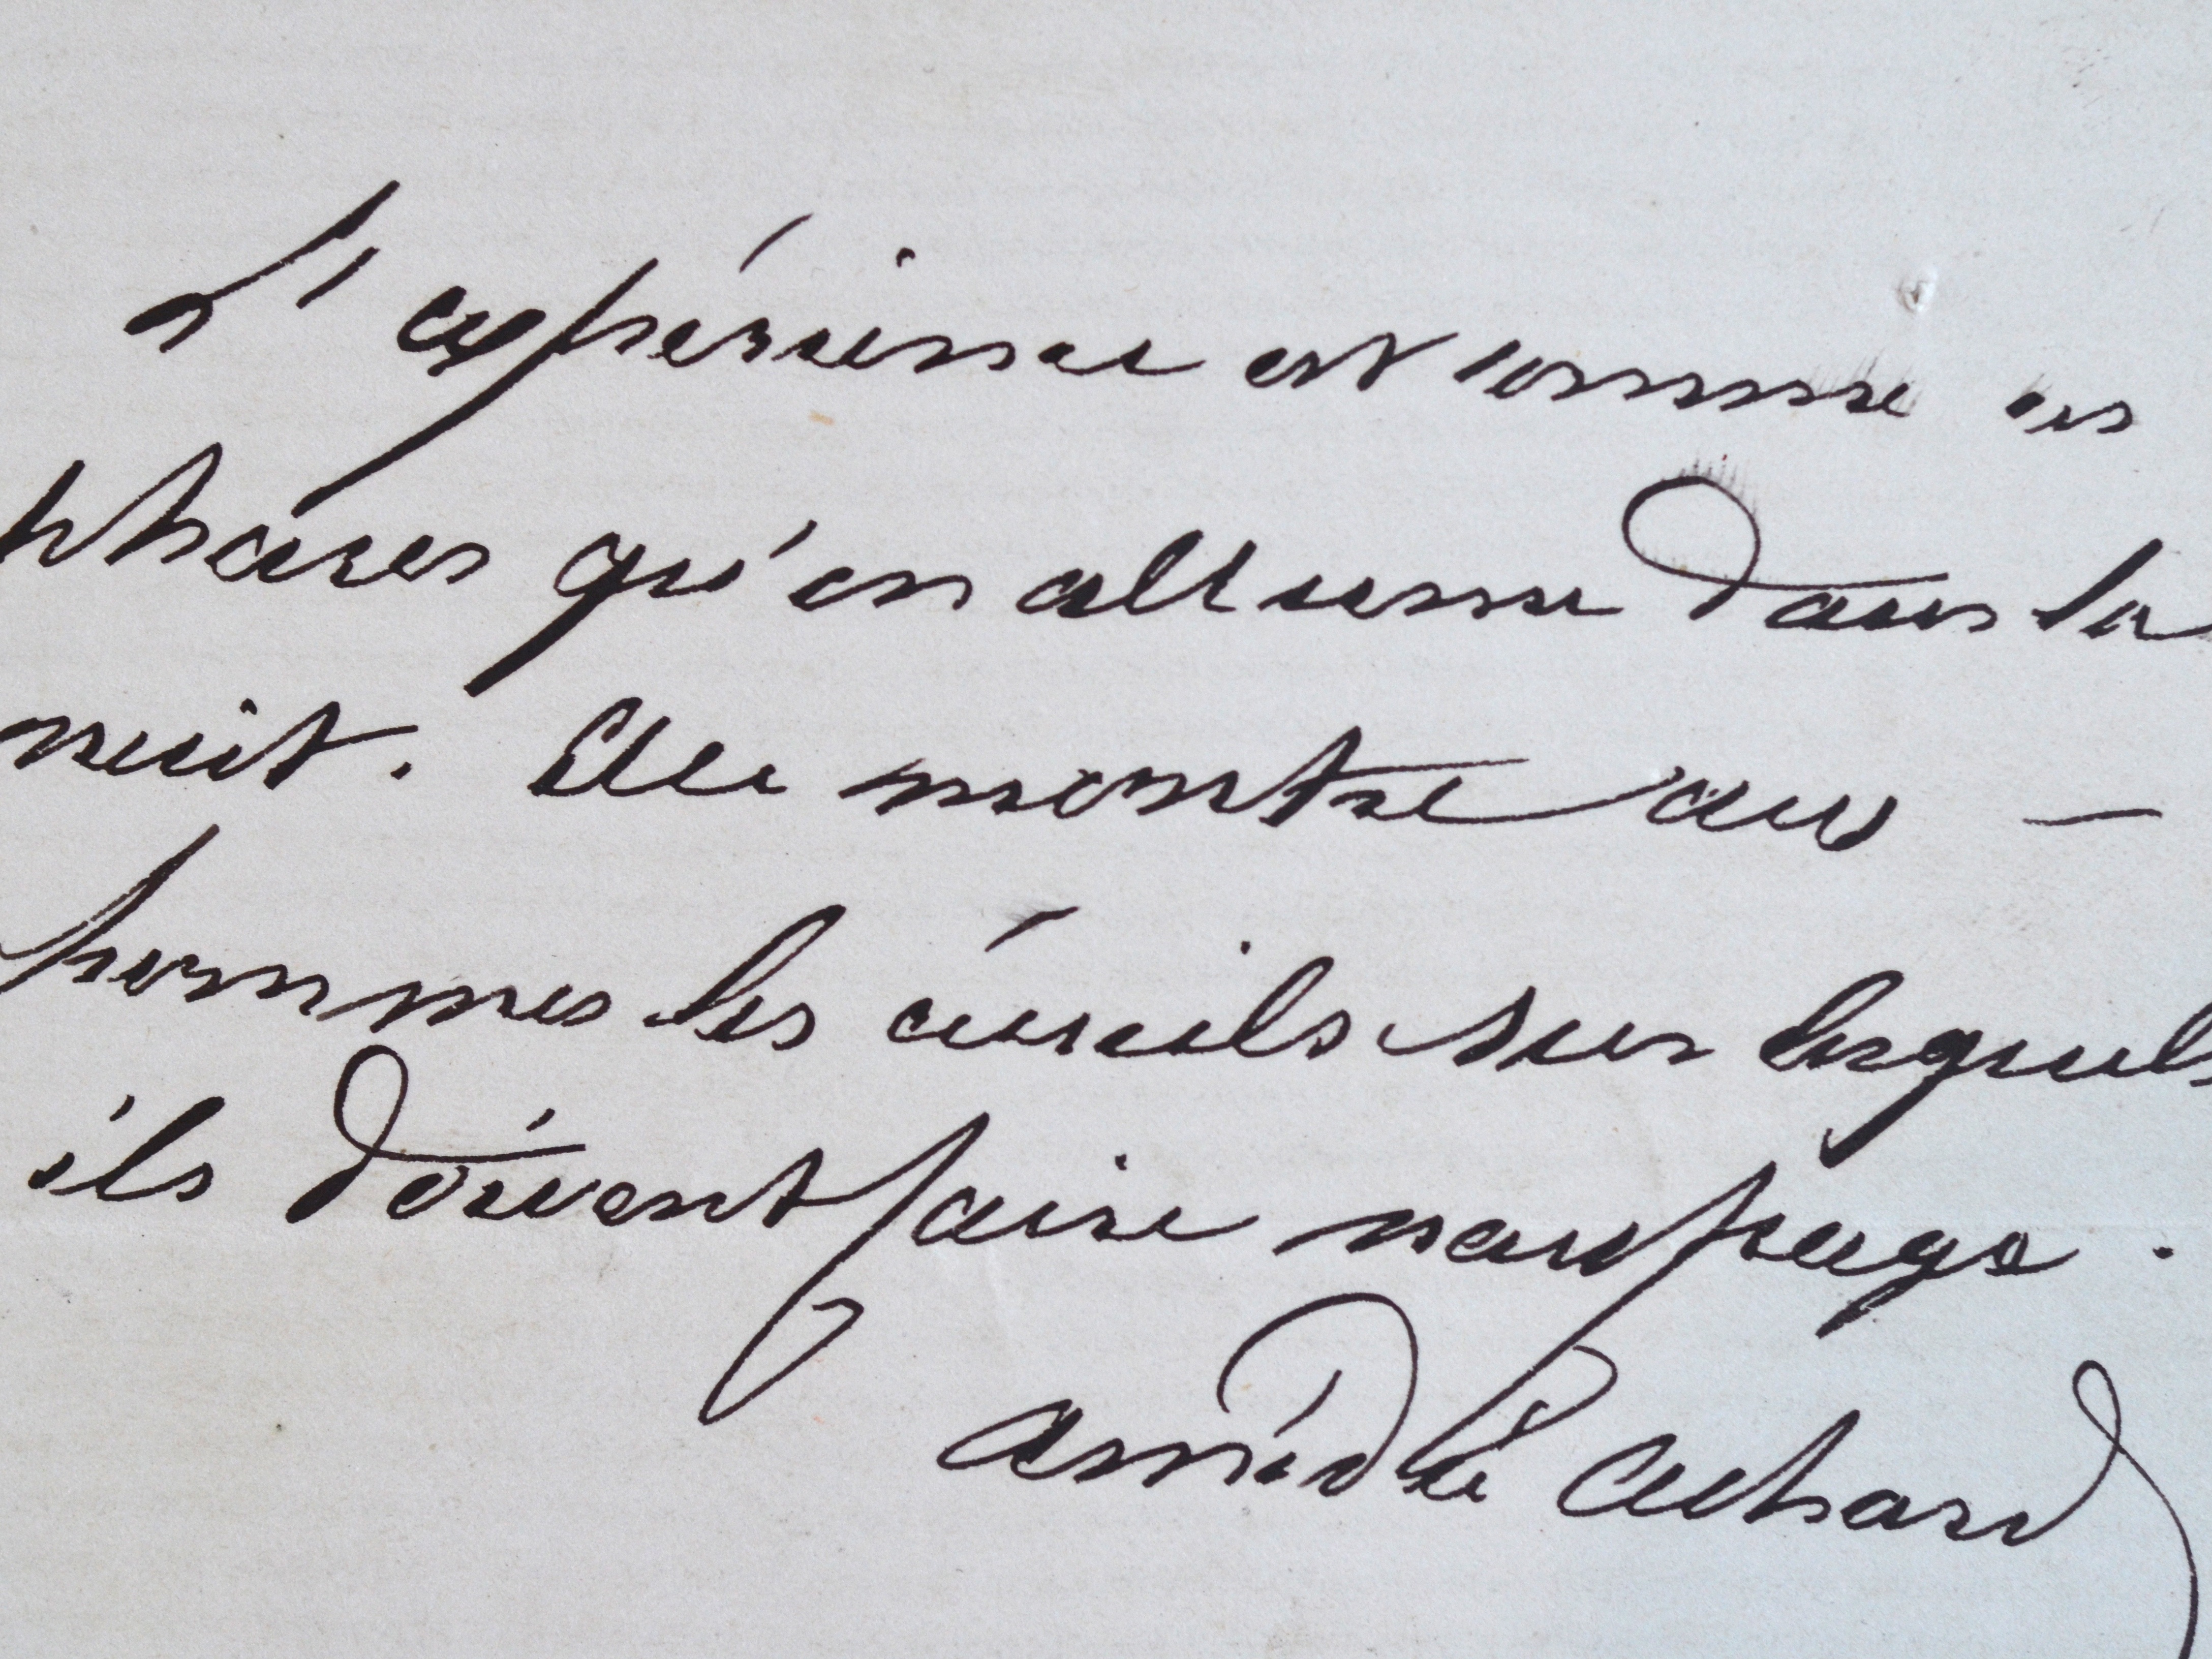 L'expérience est comme ces
phares qu'on allume dans la
nuit. Elle montre aux —
hommes les écueils sur lesquels
ils doivent faire naufrage.
Amédée Achard